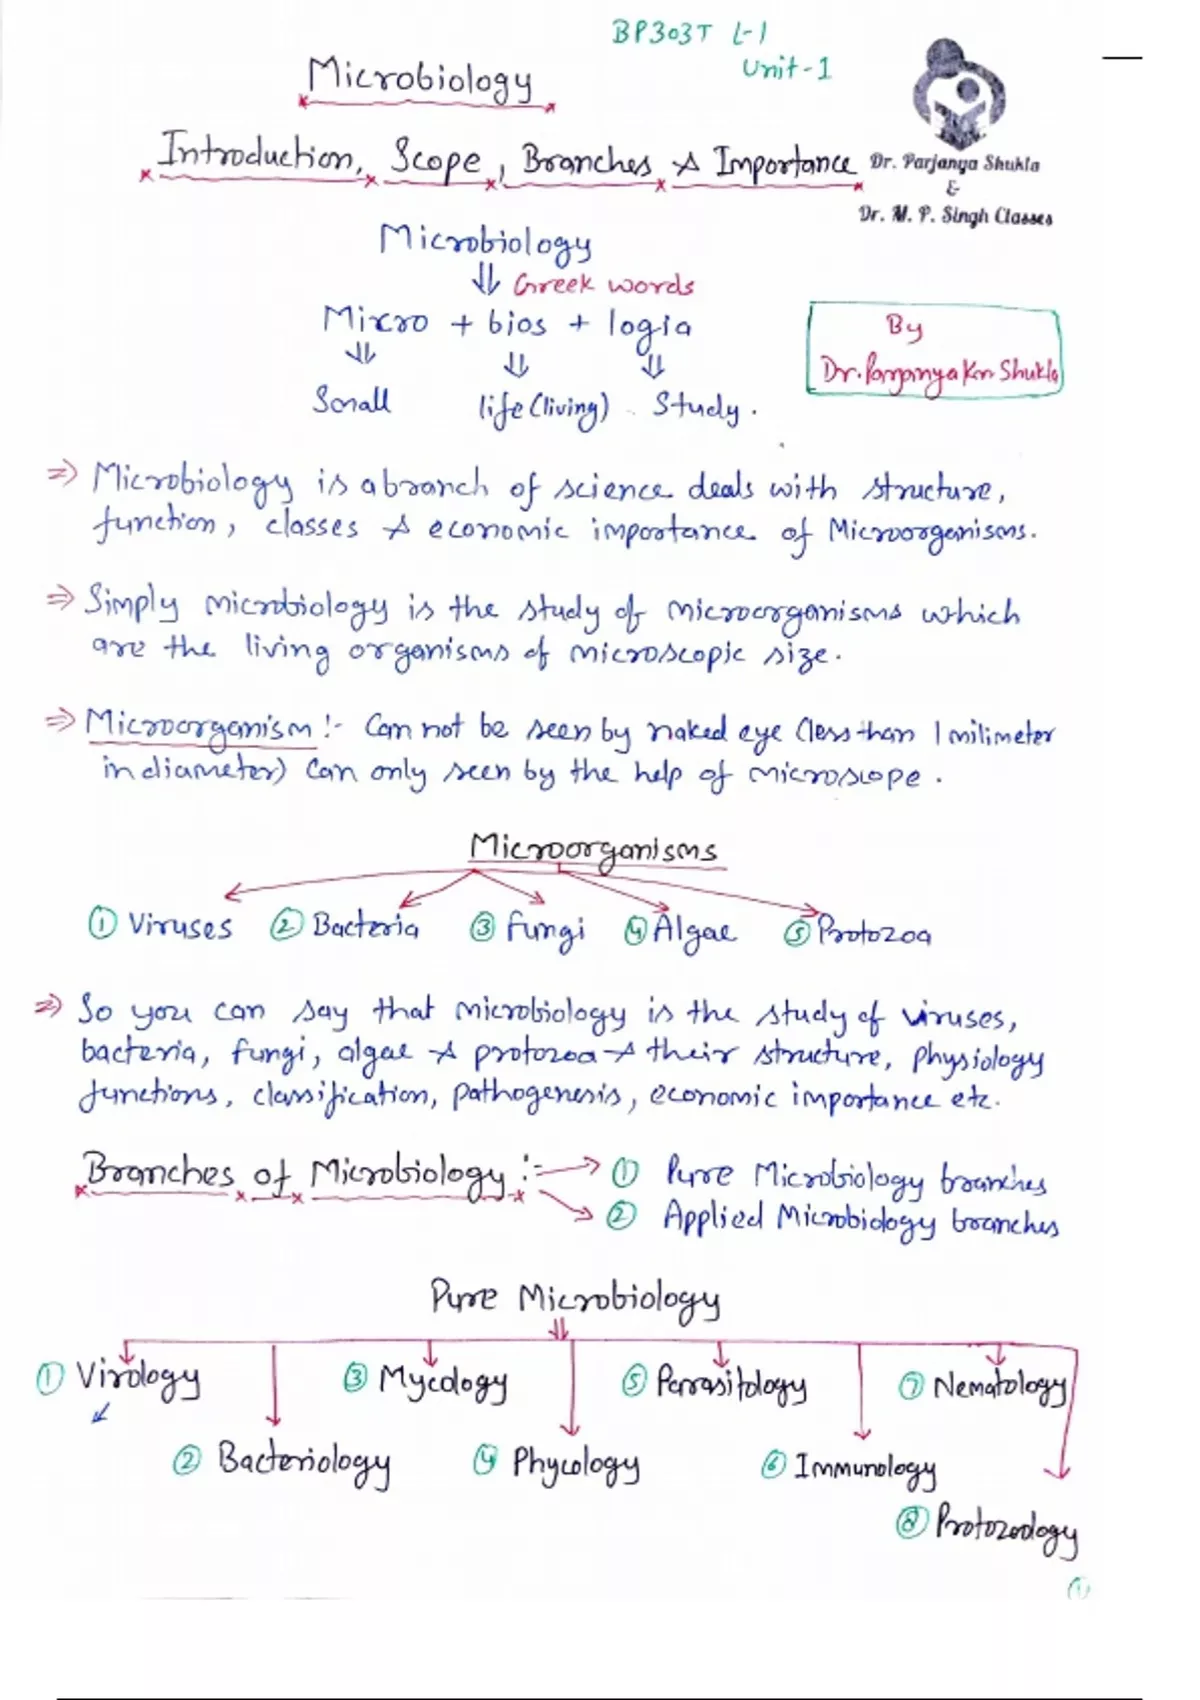 BP303T L-1
Unit-1
Microbiology
Introduction, Scope, Branches & Importance
Dr. Parjanya Shukla
&
Dr. M. P. Singh Classes
Microbiology
⇓ Greek words
Mikro + bios + logia
⇓ ⇓ ⇓
Small life (living) Study.
By
Dr. Parjanya Kr. Shukla
⇒ Microbiology is a branch of science deals with structure,
function, classes & economic importance of Microorganisms.
⇒ Simply microbiology is the study of microorganisms which
are the living organisms of microscopic size.
⇒ Microorganism :- Can not be seen by naked eye (less than 1 milimeter
in diameter) Can only seen by the help of microscope.
Microorganisms
① Viruses ② Bacteria ③ fungi ④ Algae ⑤ Protozoa
⇒ So you can say that microbiology is the study of viruses,
bacteria, fungi, algae & protozoa & their structure, physiology
functions, classification, pathogenesis, economic importance etc.
Branches of Microbiology :- → ① Pure Microbiology branches
→ ② Applied Microbiology branches
Pure Microbiology
① Virology ③ Mycology ⑤ Parasitology ⑦ Nematology
② Bacteriology ④ Phycology ⑥ Immunology
⑧ Protozoology
①